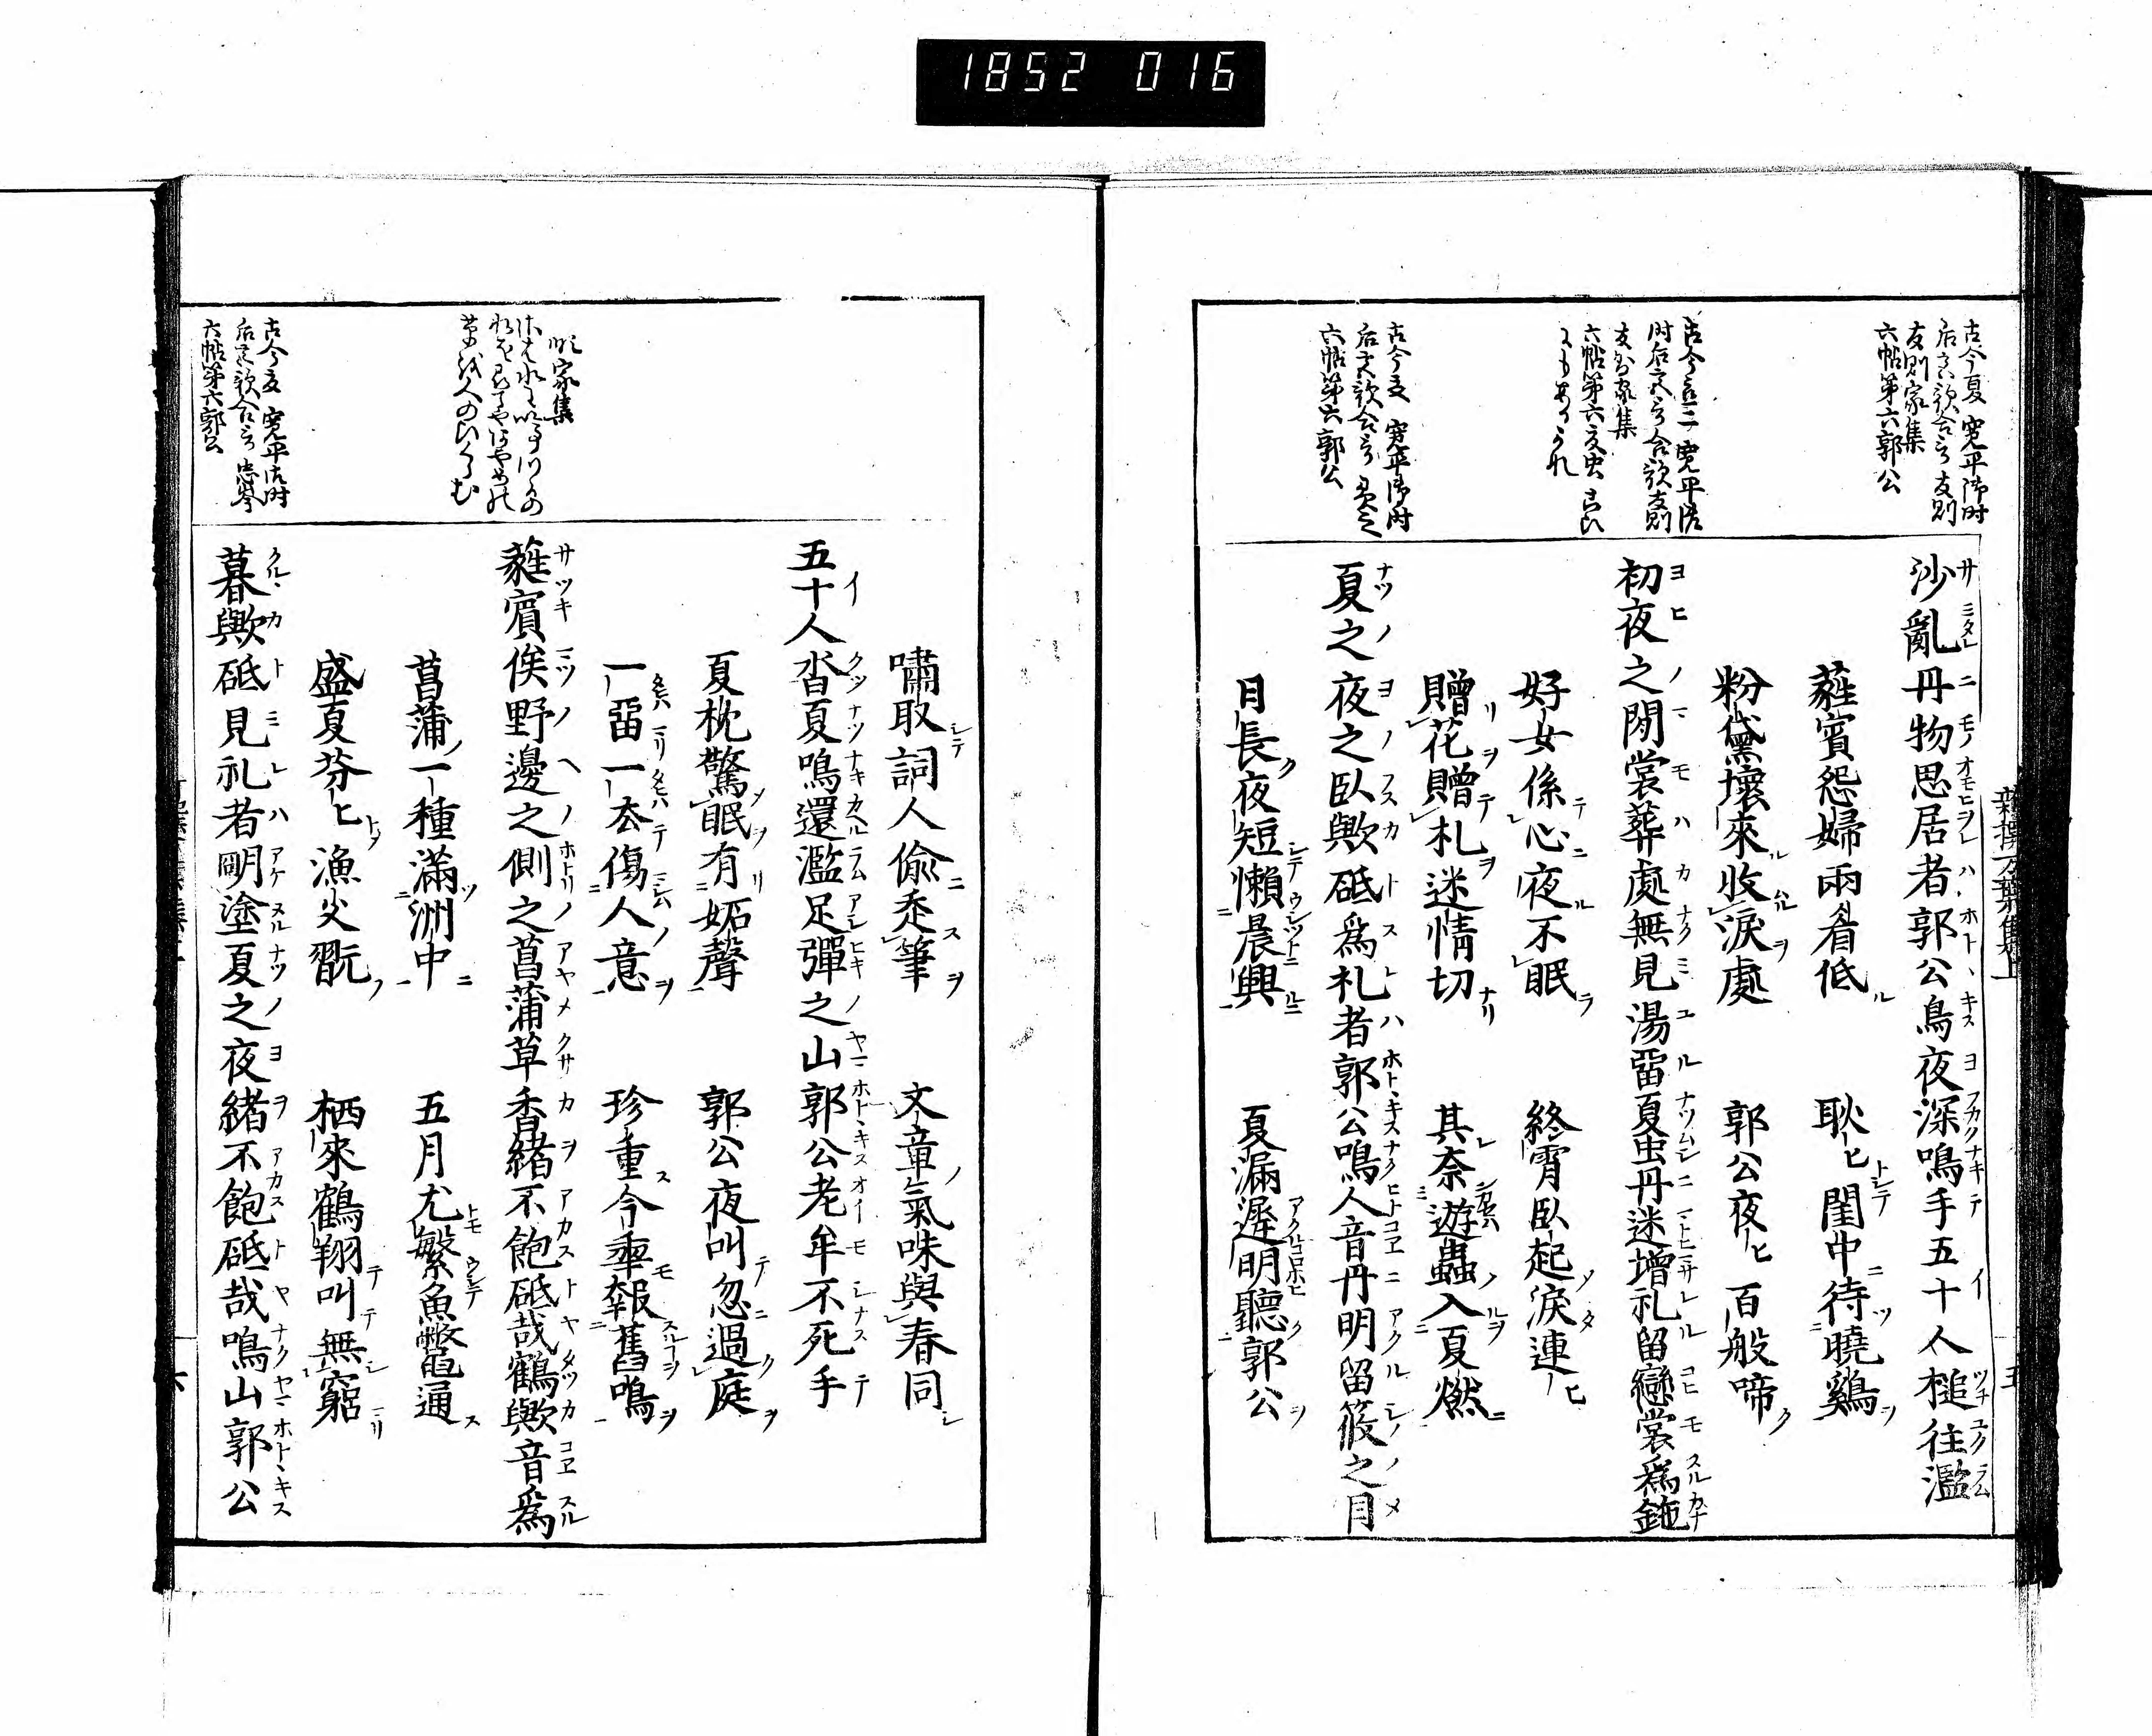 1852 016
古今夏 寛平御時
后宮歌合 友則
友則家集
六帖第六郭公
沙亂丹物思居者郭公鳥夜深鳴手五十人槌往濫
蕤賓怨婦兩眉低 耿〻閨中待曉鷄
粉黛壞來收淚處 郭公夜〻百般啼
六帖第六
初夜之間裳葬處無見湯留夏虫丹迷增礼留戀裳為鉇
好女係心夜不眠 終霄臥起淚連〻
贈花贈札迷情切 其奈遊蟲入夏燃
古今夏 寛平御時
六帖第六郭公
夏之夜之臥歟砥為礼者郭公鳴人音丹明留筱之月
日長夜短懶晨興 夏漏遲明聽郭公
新撰万葉集上
五
嘯取詞人偷走筆 文章氣味與春同
五十人沓夏鳴還濫足彈之山郭公老牟不死手
夏枕驚眠有妬聲 郭公夜叫忽過庭
一留一去傷人意 珍重今年報舊鳴
家集
蕤賓俟野邊之側之菖蒲草香緒不飽砥哉鶴歟音為
菖蒲一種滿洲中 五月尤繁魚鼈通
盛夏芬〻漁父翫 栖來鶴翔叫無窮
古今夏 寛平御時
后宮歌合 忠岑
六帖第六郭公
暮歟砥見礼者明塗夏之夜緒不飽砥哉鳴山郭公
六